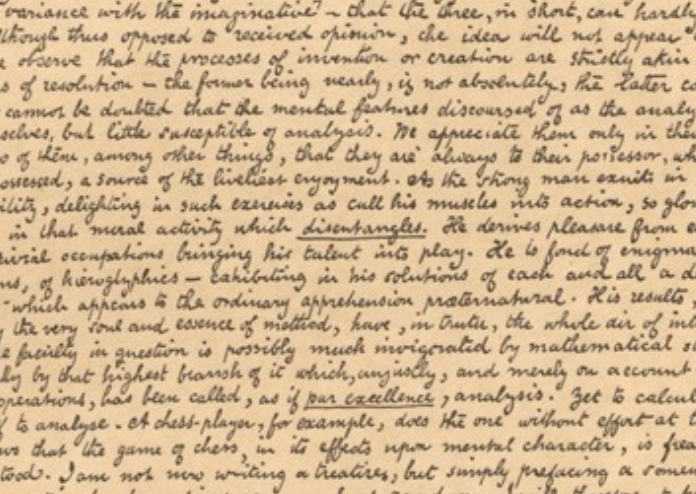 variance with the imaginative — that the three, in short, can hardly
though thus opposed to received opinion, the idea will not appear
observe that the processes of invention or creation are strictly akin
s of resolution — the former being nearly, if not absolutely, the latter co
cannot be doubted that the mental features discoursed of as the analy
selves, but little susceptible of analysis. We appreciate them only in the
of them, among other things, that they are always to their possessor, wh
ossessed, a source of the liveliest enjoyment. As the strong man exults in
ility, delighting in such exercises as call his muscles into action, so glor
in that moral activity which disentangles. He derives pleasure from e
rivial occupations bringing his talent into play. He is fond of enigma
ns, of hieroglyphics — exhibiting in his solutions of each and all a d
which appears to the ordinary apprehension præternatural. His results
y the very soul and essence of method, have, in truth, the whole air of in
e faculty in question is possibly much invigorated by mathematical s
lly by that highest branch of it which, unjustly, and merely on account
operations, has been called, as if par excellence, analysis. Yet to calcul
f to analyse. A chess-player, for example, does the one without effort at t
ws that the game of chess, in its effects upon mental character, is grea
tood. I am not now writing a treatise, but simply prefacing a some